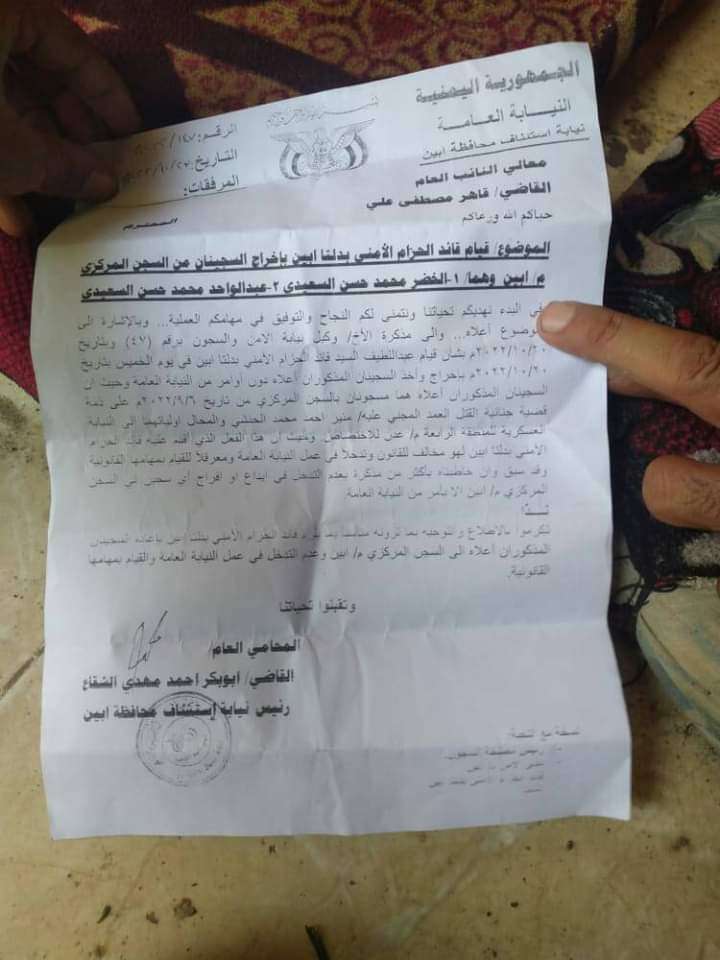 الجمهورية اليمنية
النيابة العامة
نيابة استئناف محافظة ابين
الرقم:
التاريخ:
المرفقات:
معالي النائب العام
القاضي/ قاهر مصطفى علي
المحترم
حياكم الله ورعاكم
الموضوع/ قيام قائد الحزام الأمني بدلتا ابين بإخراج السجينان من السجن المركزي
م/ ابين وهما/ ١-الخضر محمد حسن السعيدي ٢-عبدالواحد محمد حسن السعيدي
في البدء نهديكم تحياتنا ونتمنى لكم النجاح والتوفيق في مهامكم العملية... وبالإشارة الى
الموضوع أعلاه... والى مذكرة الأخ/ وكيل نيابة الأمن والسجون برقم (٤٧) وبتاريخ
٢٠٢٢/١٠/٢٠م بشأن قيام عبداللطيف السيد قائد الحزام الأمني بدلتا ابين في يوم الخميس بتاريخ
٢٠٢٢/١٠/٢٠م بإخراج وأخذ السجينان المذكوران أعلاه دون اوامر من النيابة العامة وحيث ان
السجينان المذكوران أعلاه هما مسجونان بالسجن المركزي من تاريخ ٢٠٢٢/٩/٦م على ذمة
قضية جنائية القتل العمد المجني عليه/ منير احمد محمد والمحال اولياتهما الى النيابة
العسكرية للمنطقة الرابعة م/ عدن للاختصاص وحيث ان هذا الفعل الذي أقدم عليه قائد الحزام
الأمني بدلتا ابين لهو مخالف للقانون وتدخلاً في عمل النيابة العامة ومعرقلاً للقيام بمهامها القانونية
وقد سبق وان خاطبناه بأكثر من مذكرة بعدم التدخل في ايداع او افراج أي سجين في السجن
المركزي م/ ابين الا بأمر من النيابة العامة.
لـــذا
تكرموا بالاطلاع والتوجيه بما ترونه مناسباً قائد الحزام الأمني بدلتا ابين بإعادة السجينان
المذكوران أعلاه الى السجن المركزي م/ ابين وعدم التدخل في عمل النيابة العامة والقيام بمهامها
القانونية.
وتقبلوا تحياتنا
المحامي العام/
القاضي/ ابوبكر احمد مهدي الشقاع
رئيس نيابة إستئناف محافظة ابين
نسخة مع التحية:
رئيس مصلحة السجون